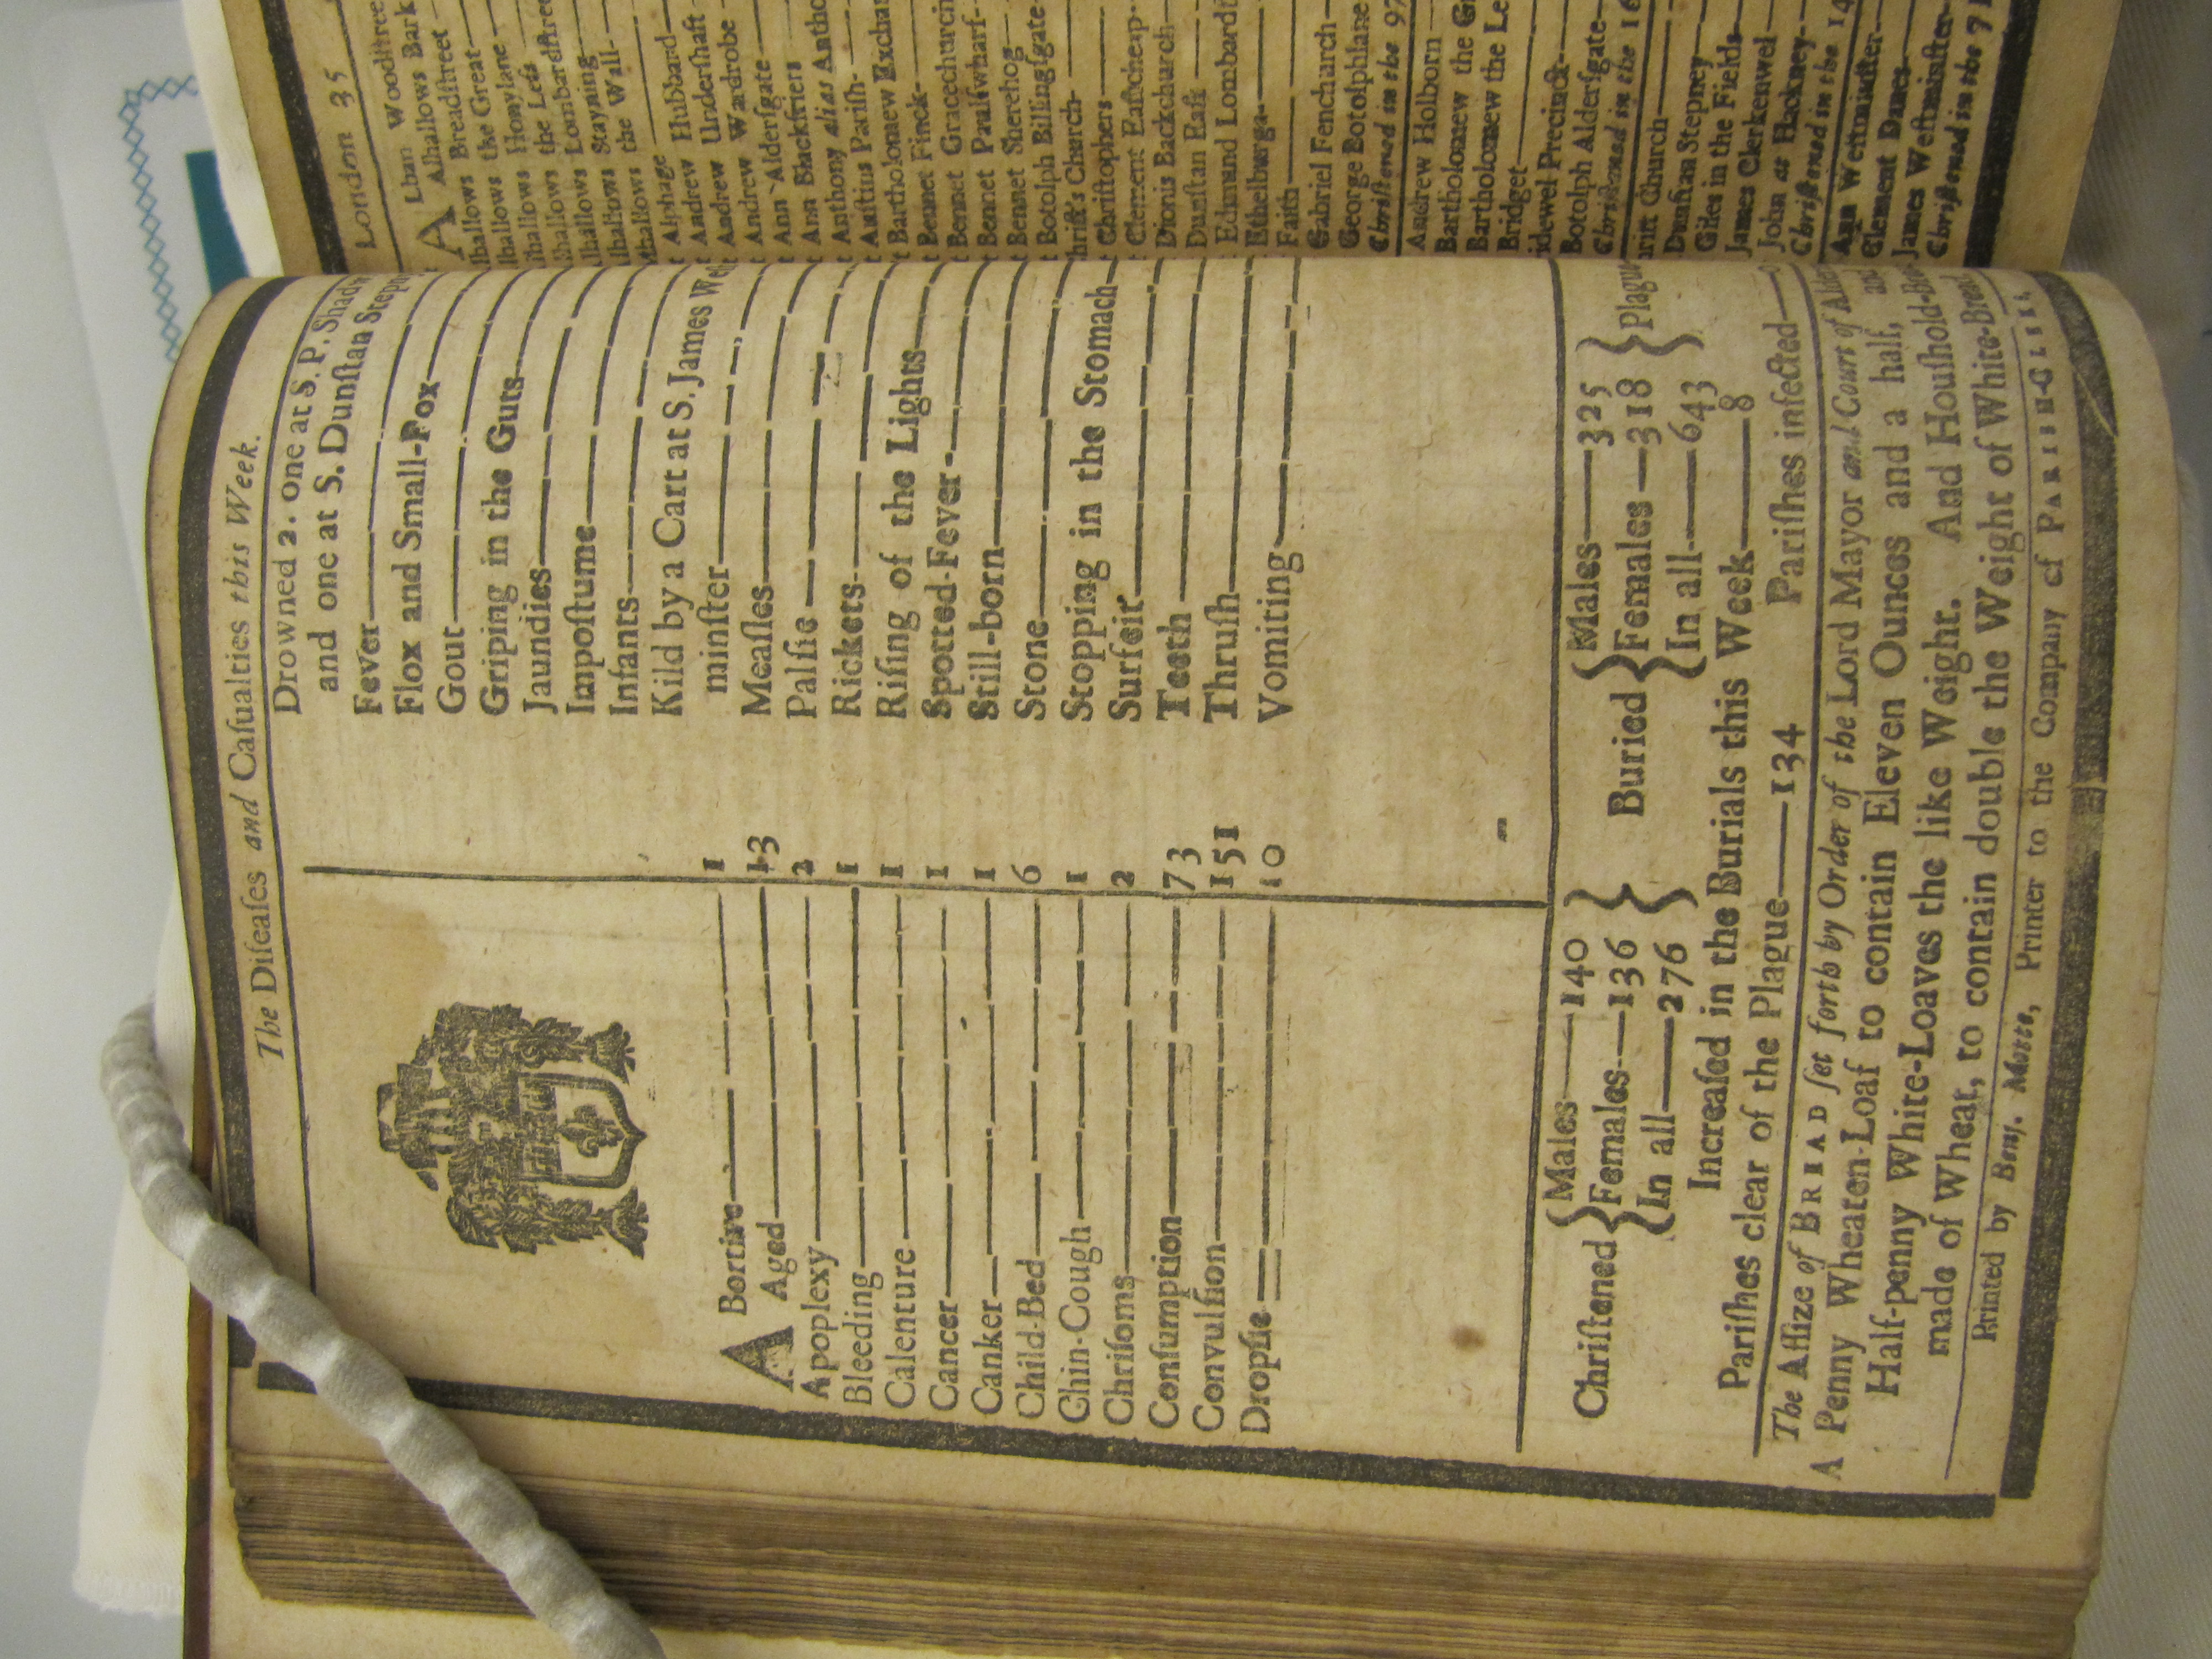 The Diſeaſes and Caſualties this Week.
ABortive 1
Aged 13
Apoplexy 2
Bleeding 1
Calenture 1
Cancer 1
Canker 1
Child-Bed 6
Chin-Cough 1
Chriſoms 2
Conſumption 73
Convulſion 151
Dropſie 10
Drowned 2. one at S. P. Shadw
and one at S. Dunſtan Stepn
Fever
Flox and Small-Pox
Gout
Griping in the Guts
Jaundies
Impoſtume
Infants
Kild by a Cart at S. James Weſt
minſter
Meaſles
Palſie
Rickets
Riſing of the Lights
Spotted-Fever
Still-born
Stone
Stopping in the Stomach
Surfeit
Teeth
Thruſh
Vomiting
Chriſtened { Males 140 Females 136 In all 276 }
Buried { Males 325 Females 318 In all 643 } Plague
Increaſed in the Burials this Week 8
Pariſhes clear of the Plague 134 Pariſhes infected
The Aſſize of BREAD ſet forth by Order of the Lord Mayor and Court of Alder
A Penny Wheaten-Loaf to contain Eleven Ounces and a half, and
Half-penny White-Loaves the like Weight. And Houſhold-Bre
made of Wheat, to contain double the Weight of White-Bread.
Printed by Benj. Motte, Printer to the Company of PARISH-CLERKS
London 35
ALban Woodſtree
Alhallows Bark
lhallows Breadſtreet
lhallows the Great
lhallows Honylane
lhallows the Leſs
lhallows Lombardſtree
lhallows Stayning
lhallows the Wall
t Alphage
t Andrew Hubbard
t Andrew Underſhaft
t Andrew Wardrobe
t Ann Alderſgate
t Ann Blackfriers
t Anthony alias Antho
t Auſtins Pariſh
t Bartholomew Exchan
t Bennet Finck
t Bennet Gracechurch
t Bennet Paulſwharf
t Bennet Sherehog
t Botolph Billingſgate
hriſt's Church
t Chriſtophers
t Clement Eaſtcheap
t Dionis Backchurch
t Dunſtan Eaſt
t Edmund Lombardſt
t Ethelburga
t Faith
Gabriel Fenchurch
George Botolphlane
Chriſtened in the 97
Andrew Holborn
Bartholomew the Gr
Bartholomew the Le
Bridget
idewel Precinct
Botolph Alderſgate
Chriſtened in the 16
riſt Church
Dunſtan Stepney
Giles in the Fields
James Clerkenwel
John at Hackney
Chriſtened in the 14
Ann Weſtminſter
Clement Danes
James Weſtminſter
Chriſtened in the 7